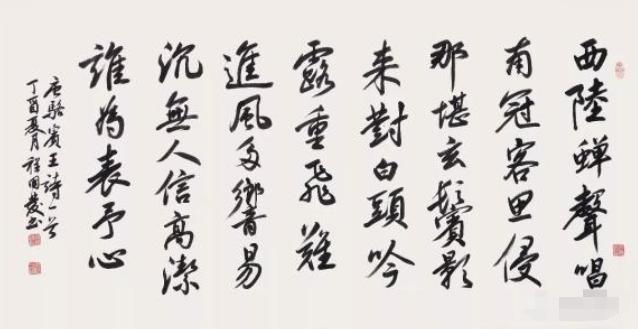 西陸蟬聲唱
南冠客思侵
那堪玄鬢影
来對白頭吟
露重飛難
進風多響易
沉無人信高潔
誰為表予心
唐駱賓王詩一首
丁酉夏月程国發书